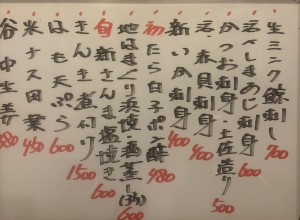 生ミンク鯨刺し 700
活〆しまあじ刺身 600
かつお刺身・土佐造り 500
活赤貝刺身 400
新いか刺身 400
初 たら白子ポン酢 480
地はまぐり浜焼・酒蒸し(3ヶ) 600
旬 新さんま塩焼き 600
きんき煮付け 1500
はも天ぷら 600
米ナス田楽 450
谷中生姜 380